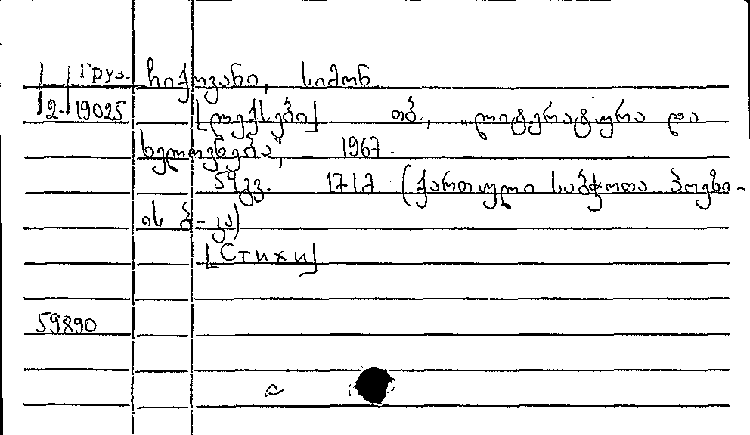 Груз. ჩიქოვანი, სიმონ
2-19025 [ლექსები] თბ., „ლიტერატურა და
ხელოვნება“, 1967.
59 გვ. 17 (ქართული საბჭოთა პოეზი-
ის ბ-კა)
[Стихи]
59890